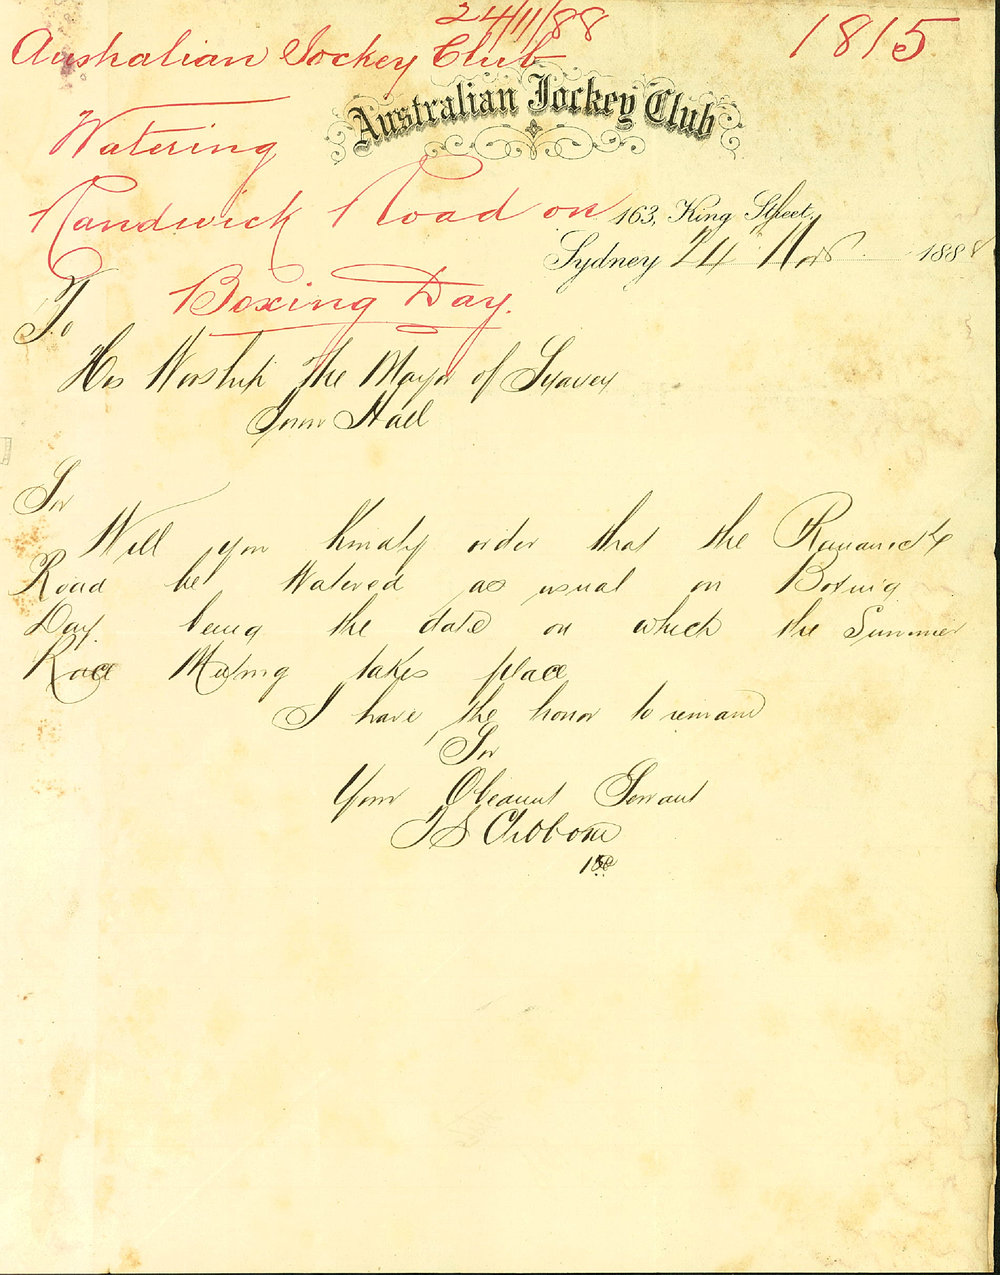 24/11/88
1815
Australian Jockey Club
Australian Jockey Club
Watering
Randwick Road on
163, King Street,
Sydney 24 Nov 1888
Boxing Day.
To
His Worship The Mayor of Sydney
Town Hall
Sir
Will you kindly order that the Randwick
Road be Watered as usual on Boxing
Day. being the date on which the Summer
Race Meeting takes place
I have the honor to remain
Sir
Your Obedient Servant
T S Clibborn